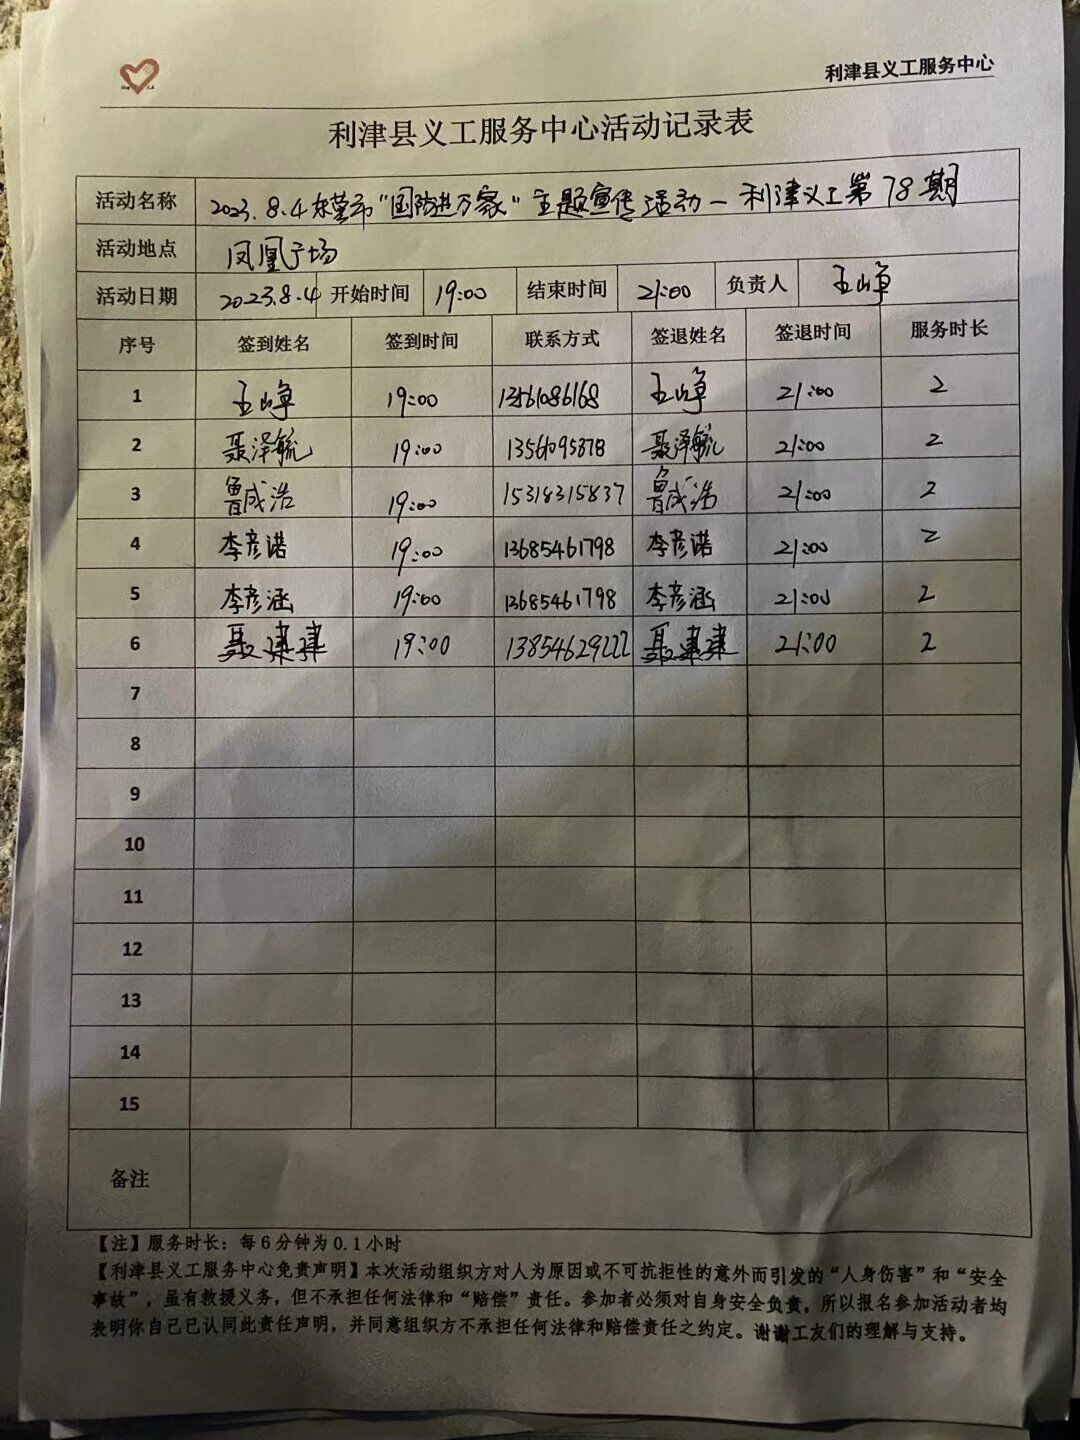 利津县义工服务中心
利津县义工服务中心活动记录表
活动名称 2023.8.4东营市“国防进万家”主题宣传活动—利津义工第78期
活动地点 凤凰广场
活动日期 2023.8.4 开始时间 19:00 结束时间 21:00 负责人 王峥
序号 签到姓名 签到时间 联系方式 签退姓名 签退时间 服务时长
1 王峥 19:00 13561086168 王峥 21:00 2
2 聂泽毓 19:00 13561095878 聂泽毓 21:00 2
3 鲁成浩 19:00 15318315837 鲁成浩 21:00 2
4 李彦诺 19:00 13685461798 李彦诺 21:00 2
5 李彦涵 19:00 13685461798 李彦涵 21:00 2
6 聂建建 19:00 13854629222 聂建建 21:00 2
7
8
9
10
11
12
13
14
15
备注
【注】服务时长：每6分钟为0.1小时
【利津县义工服务中心免责声明】本次活动组织方对人为原因或不可抗拒性的意外而引发的“人身伤害”和“安全
事故”，虽有救援义务，但不承担任何法律和“赔偿”责任。参加者必须对自身安全负责，所以报名参加活动者均
表明你自己已认同此责任声明，并同意组织方不承担任何法律和赔偿责任之约定。谢谢工友们的理解与支持。